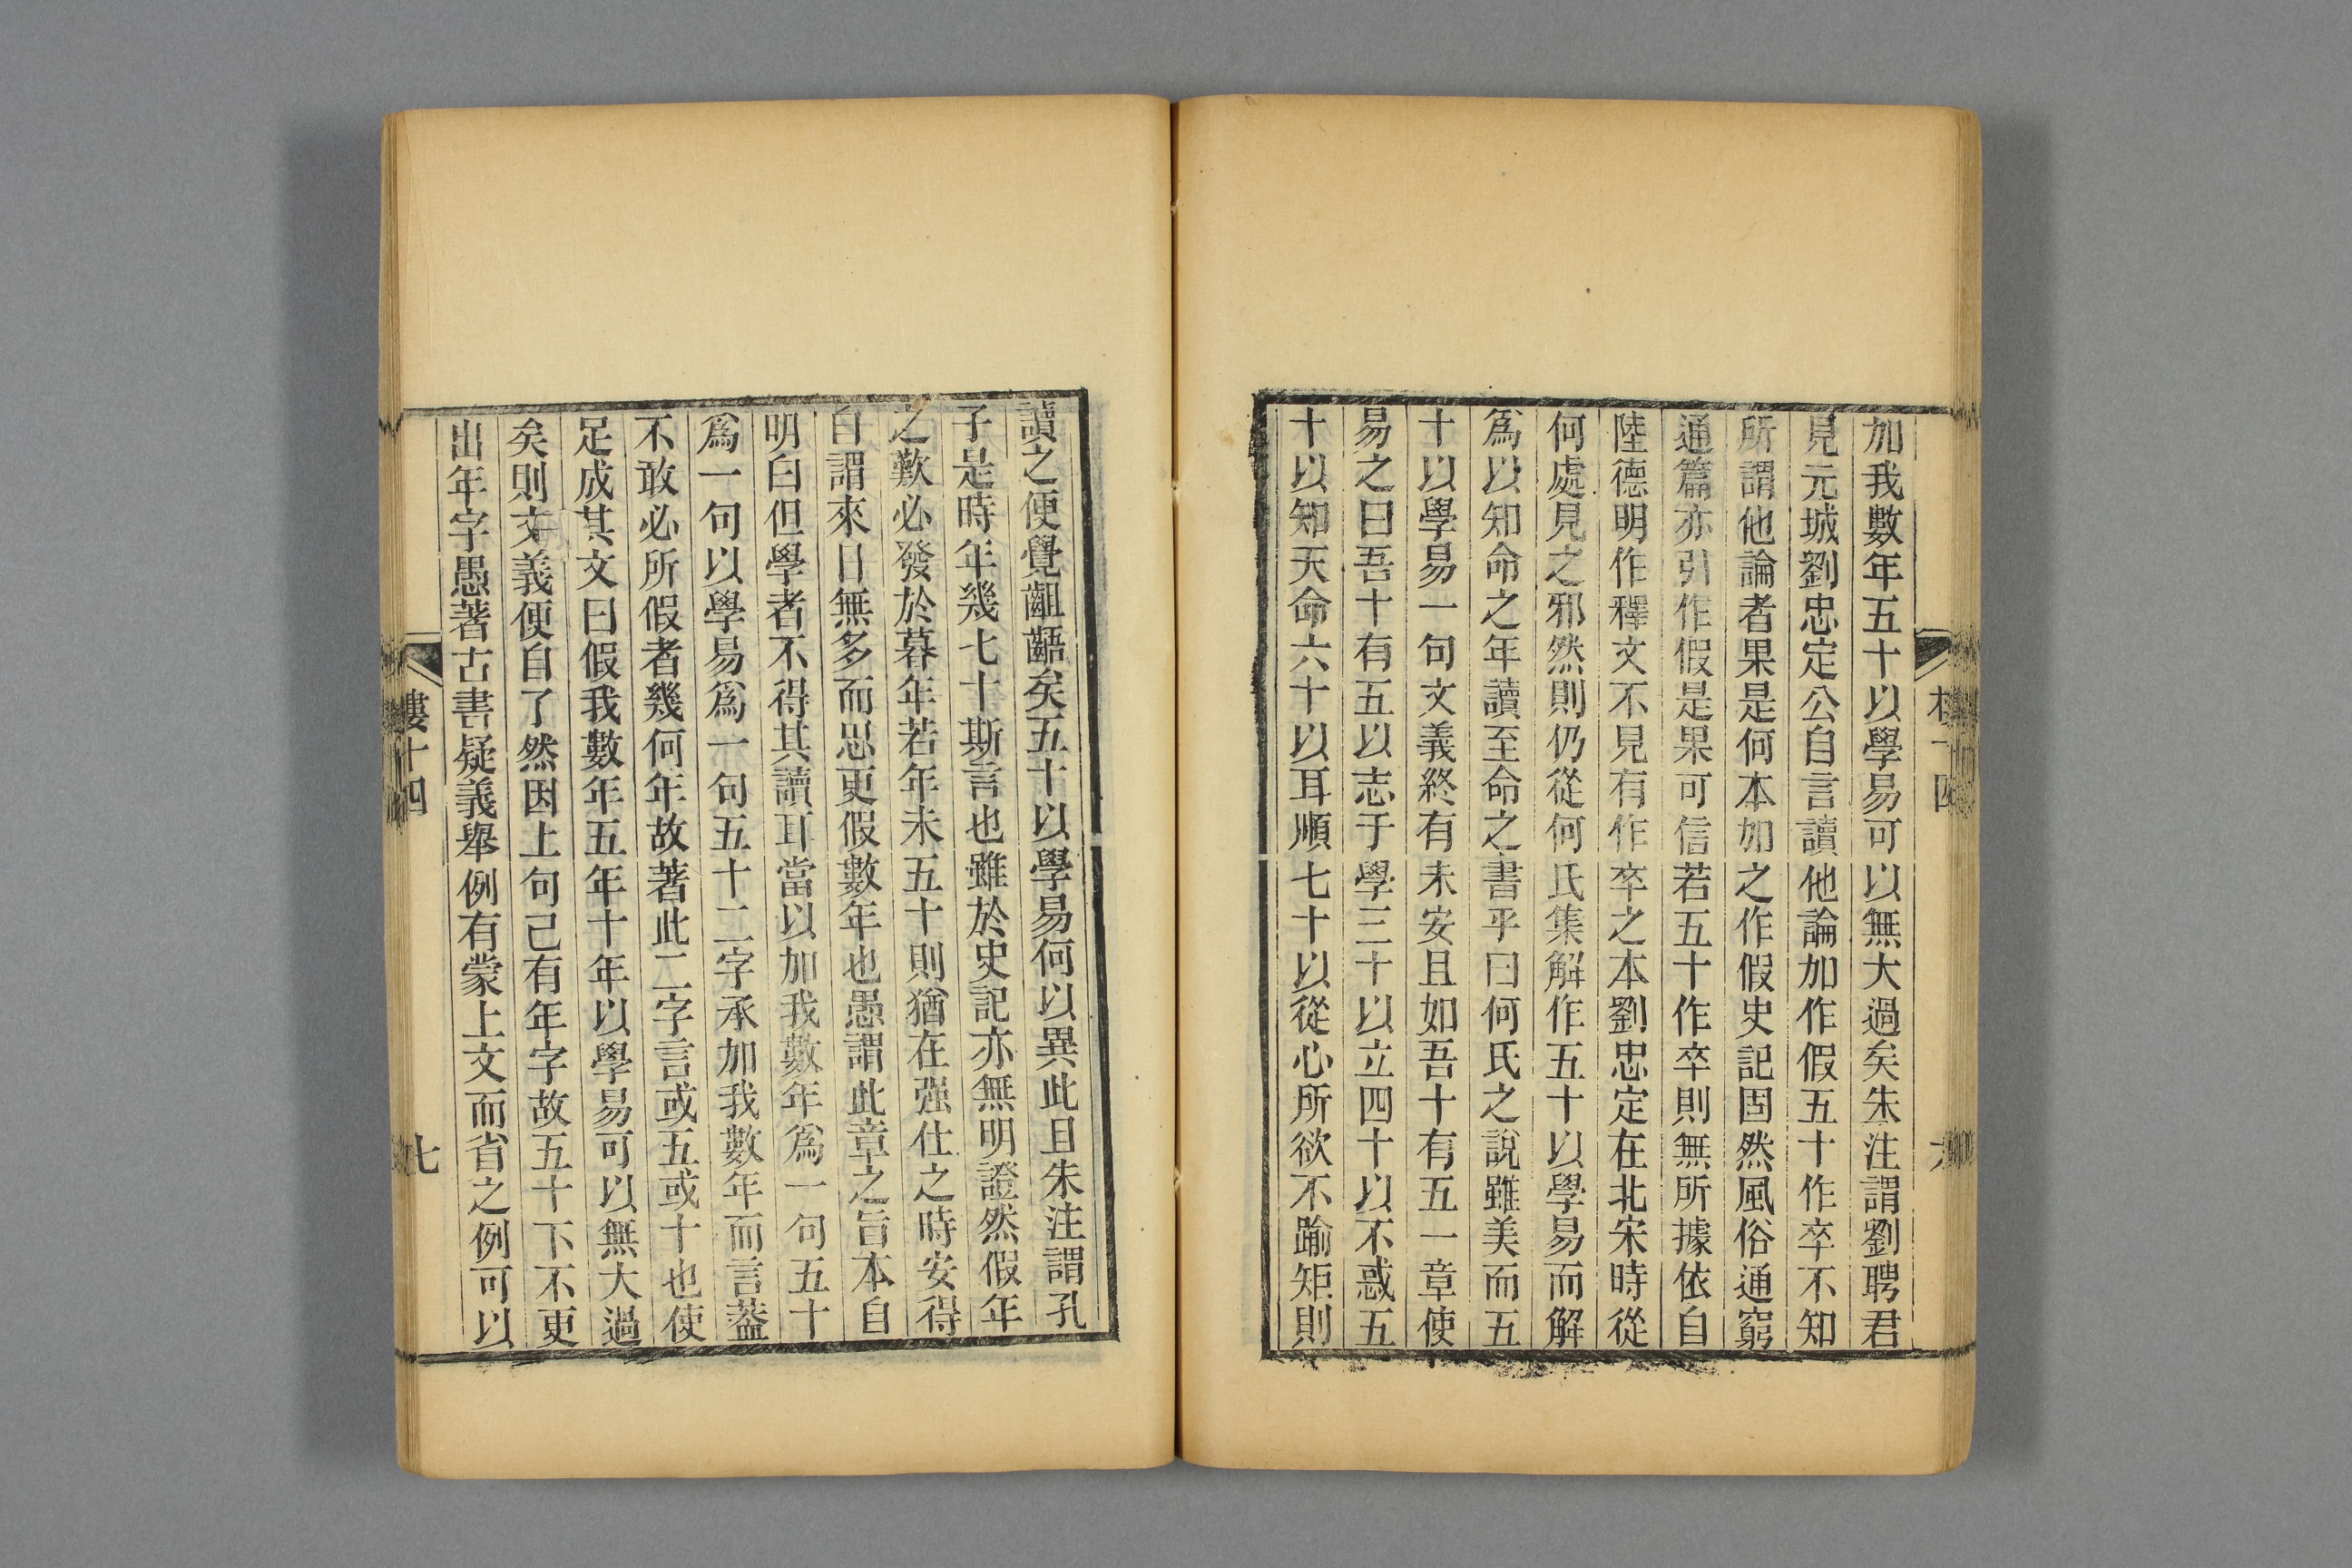 加我數年五十以學易可以無大過矣朱注謂劉聘君
見元城劉忠定公自言讀他論加作假五十作卒不知
所謂他論者果是何本如之作假史記固然風俗通窮
通篇亦引作假是果可信若五十作卒則無所據依自
陸德明作釋文不見有作卒之本劉忠定在北宋時從
何處見之邪然則仍從何氏集解作五十以學易而解
爲以知命之年讀至命之書乎曰何氏之說雖美而五
十以學易一句文義終有未安且如吾十有五一章使
易之曰吾十有五以志于學三十以立四十以不惑五
十以知天命六十以耳順七十以從心所欲不踰矩則
十四
讀之便覺齟齬矣五十以學易何以異此且朱注謂孔
子是時年幾七十斯言也雖於史記亦無明證然假年
之歎必發於暮年若年未五十則猶在强仕之時安得
自謂來日無多而思更假數年也愚謂此章之旨本自
明白但學者不得其讀耳當以加我數年爲一句五十
爲一句以學易爲一句五十二字承加我數年而言蓋
不敢必所假者幾何年故著此二字言或五或十也使
足成其文曰假我數年五年十年以學易可以無大過
矣則文義便自了然因上句己有年字故五十下不更
出年字愚著古書疑義舉例有蒙上文而省之例可以
樓十四
七